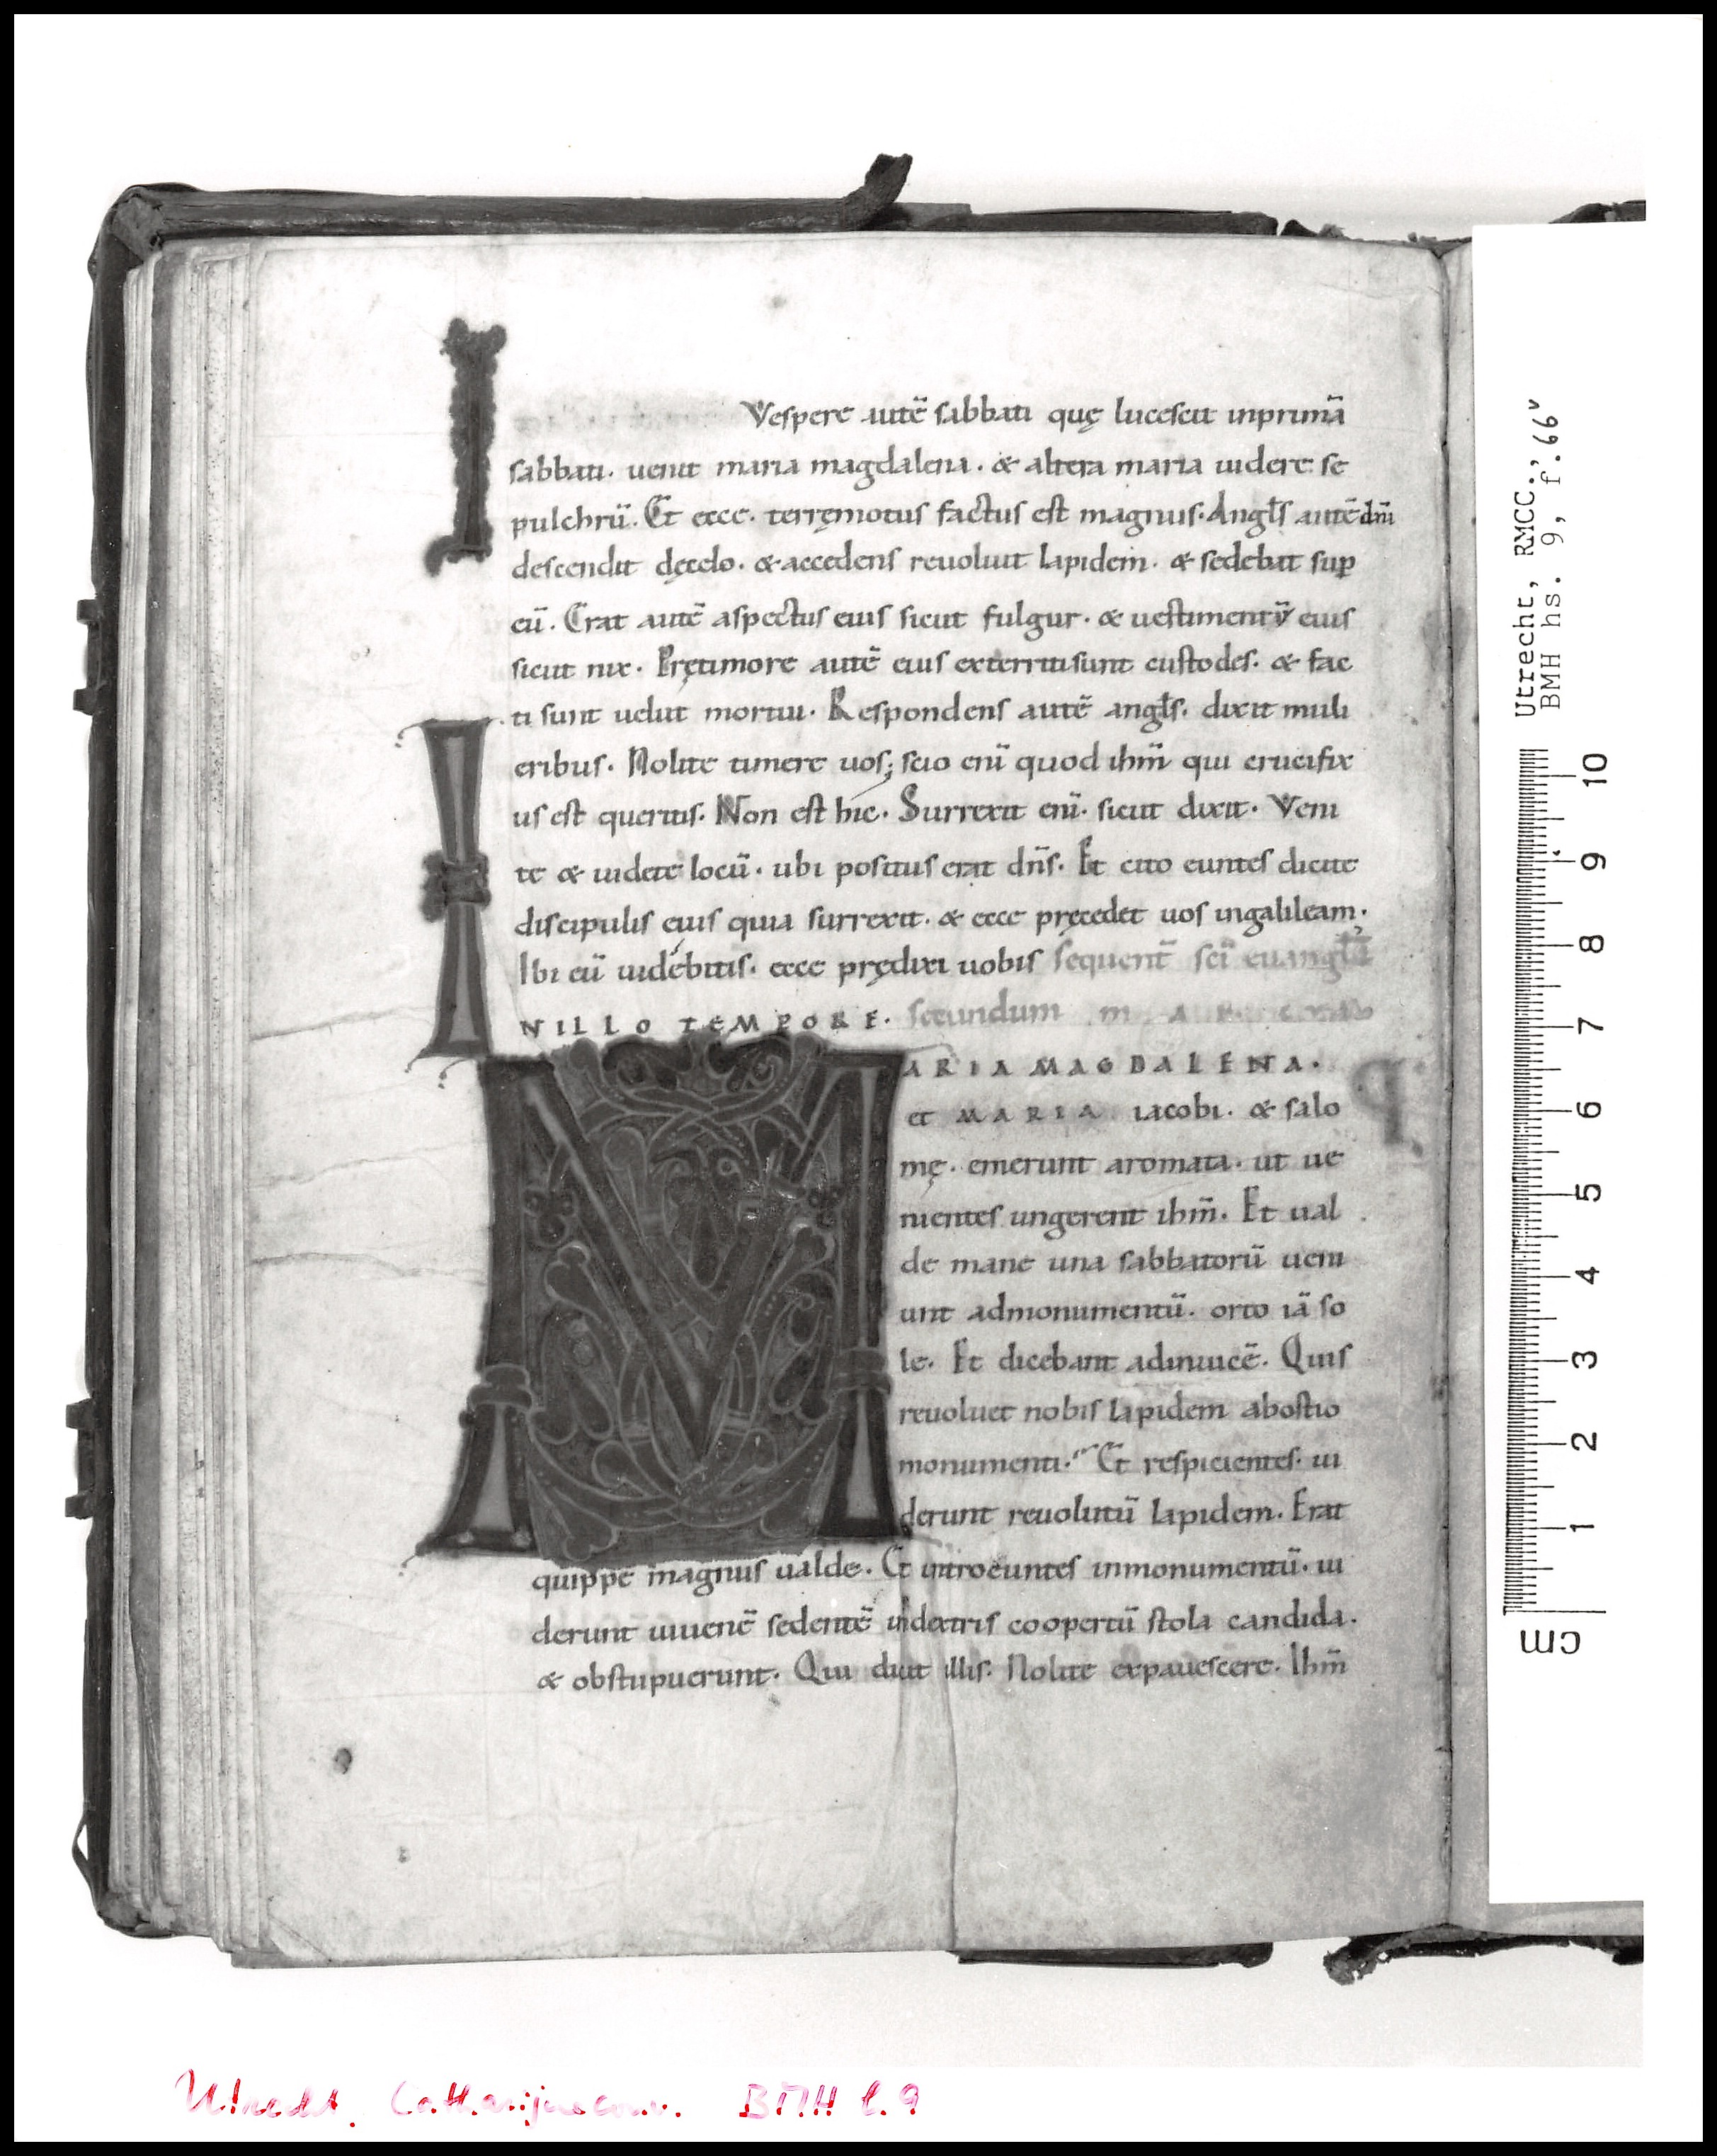 Vespere autē sabbati quę lucescit inprimā
sabbati. uenit maria magdalena. & altera maria uidere se
pulchrū. Et ecce. terręmotus factus est magnus. Angls autē dn̄i
descendit dęcelo. & accedens reuoluit lapidem. & sedebat sup
eū. Erat autē aspectus eius sicut fulgur. & uestimentū eius
sicut nix. Prętimore autē eius exterritisunt custodes. & fac
ti sunt uelut mortui. Respondens autē angls. dixit muli
eribus. Nolite timere uos; scio enī quod ihm̄ qui crucifix
us est queritis. Non est hic. Surrexit enī. sicut dixit. Veni
te & uidete locū. ubi positus erat dn̄s. Et cito euntes dicite
discipulis eius quia surrexit. & ecce pręcedet uos ingalileam.
Ibi eū uidebitis. ecce prędixi uobis sequent̄ sc̄i euanglii
I NILLO TEMPORE. secundum
MARIA MAGDALENA.
et MARIA iacobi. & salo
mę. emerunt aromata. ut ue
nientes ungerent ihm̄. Et ual
de mane una sabbatorū ueni
unt admonumentū. orto iā so
le. Et dicebant adinuicē. Quis
reuoluet nobis lapidem abostio
monumenti. Et respicientes. ui
derunt reuolutū lapidem. Erat
quippe magnus ualde. Et introeuntes inmonumentū. ui
derunt iuuenē sedentē indextris coopertū stola candida.
& obstupuerunt. Qui dixit illis. Nolite expauescere. Ihm̄
Utrecht, RMCC.,
BMH hs. 9, f.66v
10
9
8
7
6
5
4
3
2
1
cm
Utrecht, Catharijneconv. BMH h.9